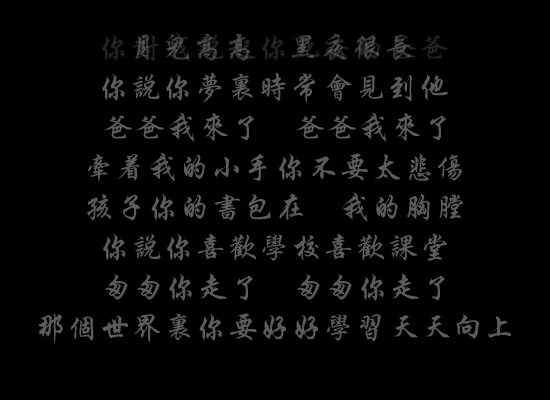 月兒高高 黑夜很長
你說你夢裏時常會見到他
爸爸我來了 爸爸我來了
牽着我的小手你不要太悲傷
孩子你的書包在 我的胸膛
你說你喜歡學校喜歡課堂
匆匆你走了 匆匆你走了
那個世界裏你要好好學習天天向上